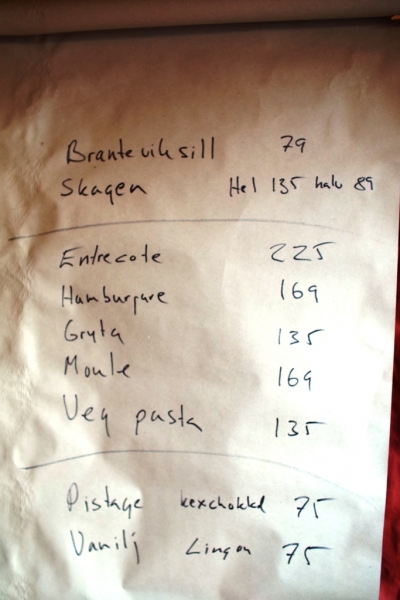 Branteviksill 79
Skagen Hel 135 halv 89
Entrecote 225
Hamburgare 169
Gryta 135
Moule 169
Veg pasta 135
Pistage kexchokkd 75
Vanilj Lingon 75